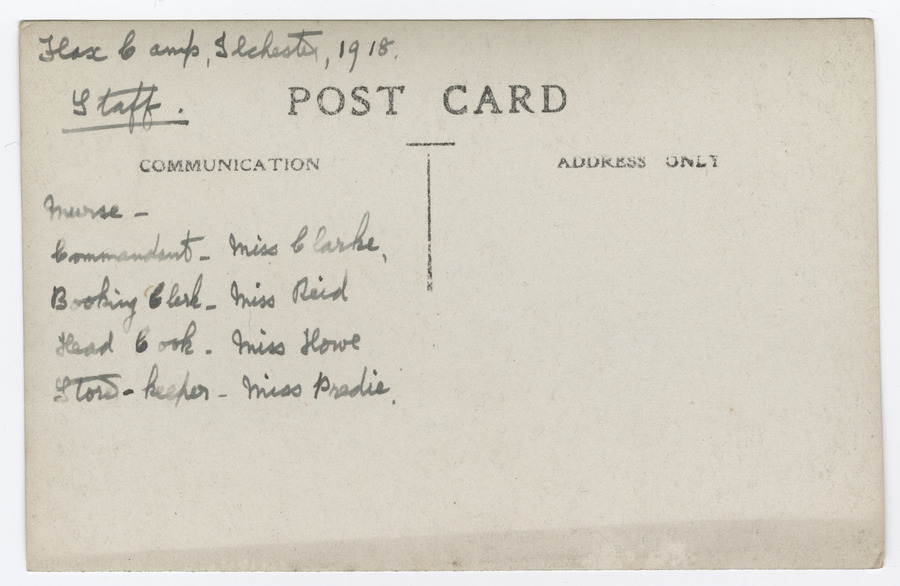 Flax Camp, Ilchester, 1918.
Staff.
POST CARD
COMMUNICATION
ADDRESS ONLY
Nurse -
Commandant - Miss Clarke,
Booking Clerk - Miss Reid
Head Cook - Miss Howe
Store-keeper - Miss Predie.